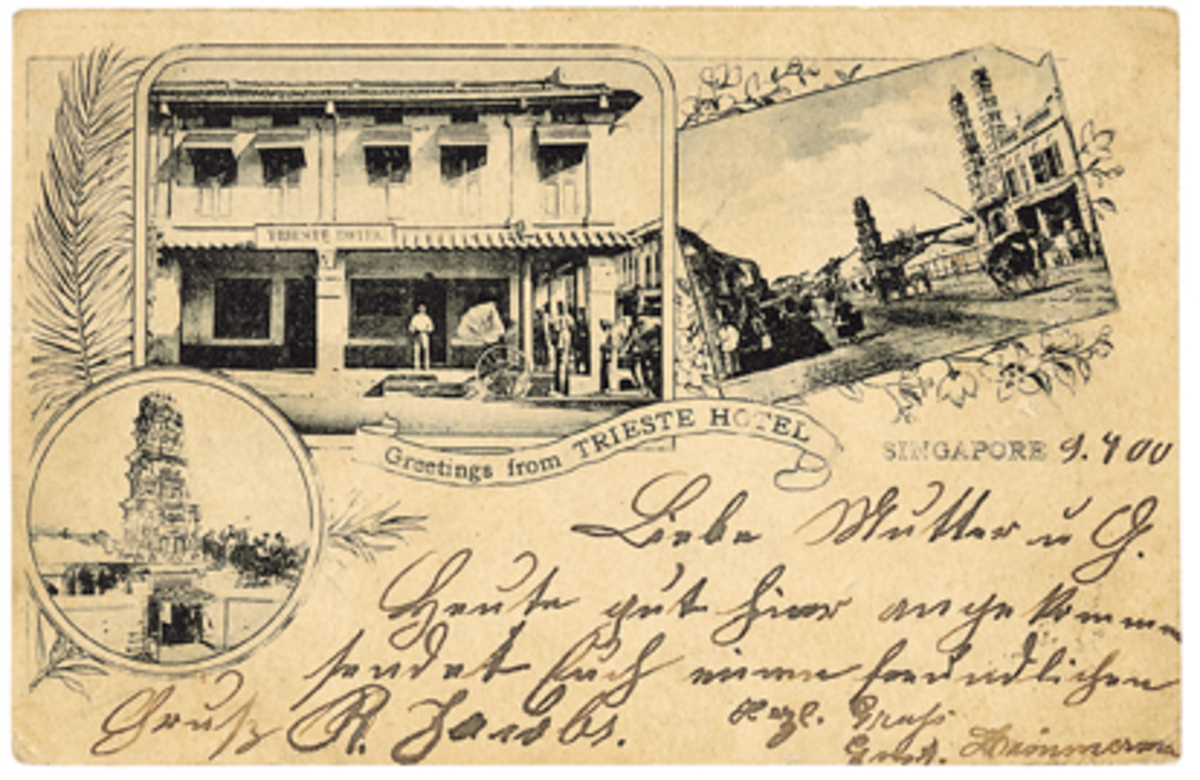 TRIESTE HOTEL
Greetings from TRIESTE HOTEL
SINGAPORE 9.4 00
Liebe Mutter u G.
Heute gut hier angekommen
sendet Euch einen freundlichen
Gruß R. Jacobs.
Herzl. Gruß